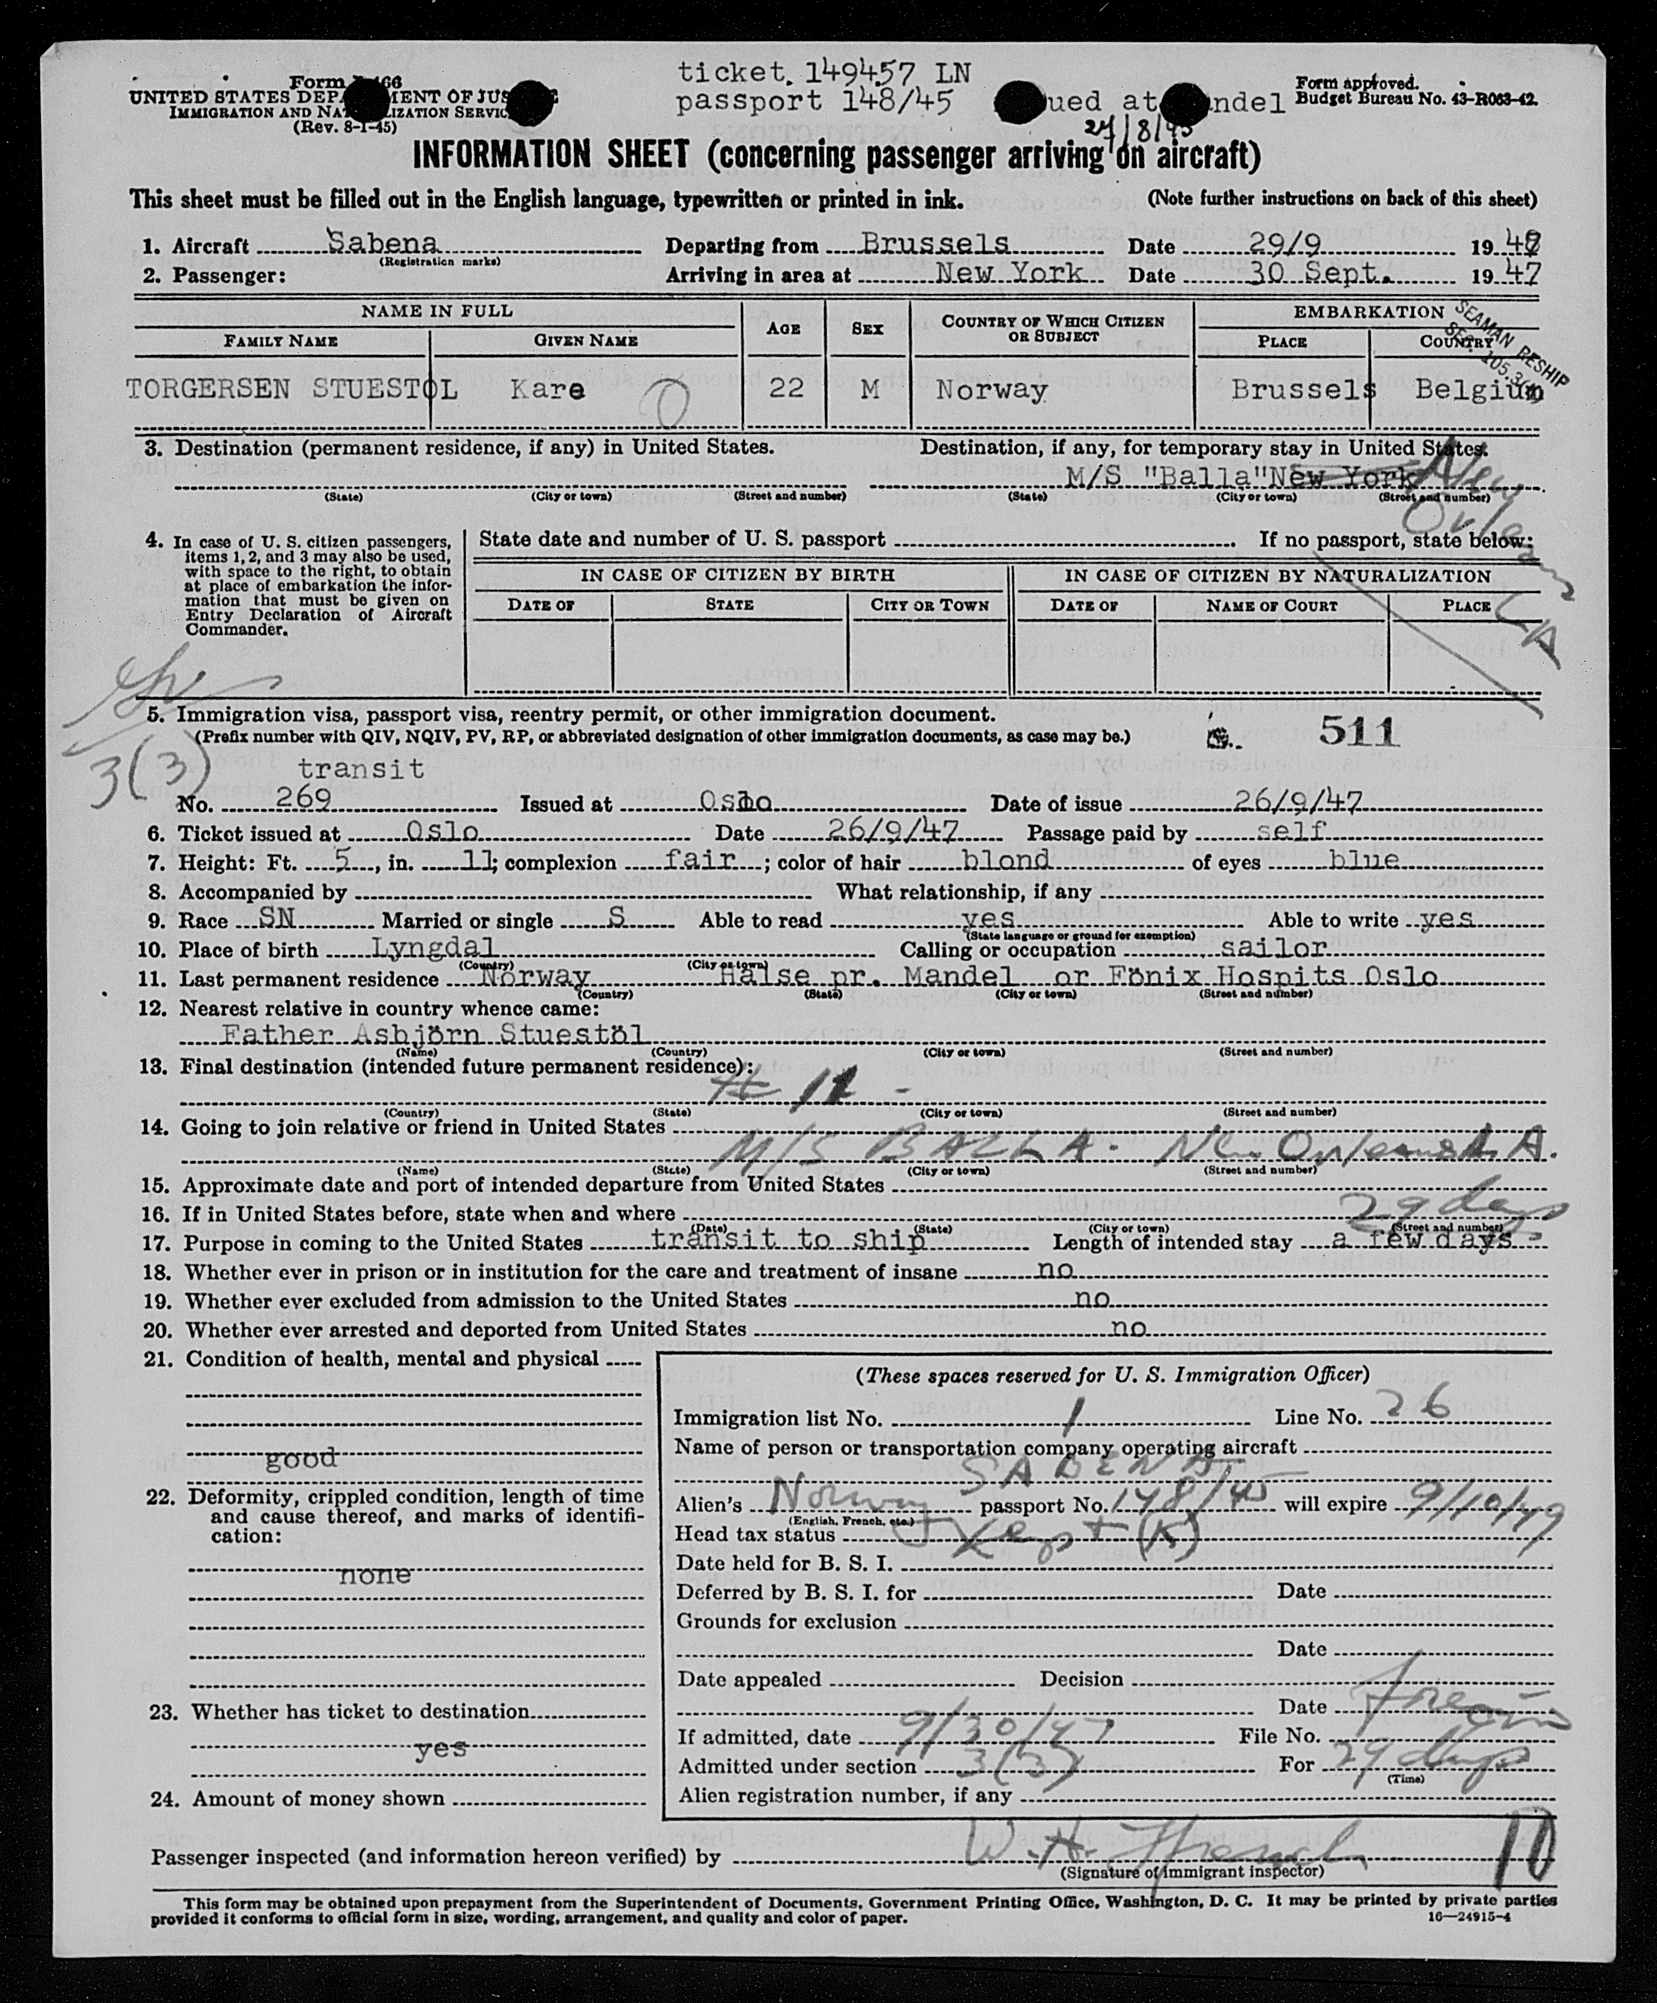 ticket. 149457 LN
Form 466
UNITED STATES DEP MENT OF JUS
passport 148/45 ued at ndel
Form approved.
Budget Bureau No. 43-R063-42.
IMMIGRATION AND NAT LIZATION SERVIC
(Rev. 8-1-45)
INFORMATION SHEET (concerning passenger arriving on aircraft)
This sheet must be filled out in the English language, typewritten or printed in ink. (Note further instructions on back of this sheet)
1. Aircraft Sabena Departing from Brussels Date 29/9 19 47
(Registration marks)
2. Passenger: Arriving in area at New York Date 30 Sept. 19 47
NAME IN FULL AGE SEX COUNTRY OF WHICH CITIZEN OR SUBJECT EMBARKATION
FAMILY NAME GIVEN NAME PLACE COUNTRY
SEAMAN RESHIP
SEC. 105.3(4)
TORGERSEN STUESTOL Kare 22 M Norway Brussels Belgium
3. Destination (permanent residence, if any) in United States. Destination, if any, for temporary stay in United States.
M/S "Balla" New York New Orleans LA
(State) (City or town) (Street and number) (State) (City or town) (Street and number)
4. In case of U. S. citizen passengers, items 1, 2, and 3 may also be used, with space to the right, to obtain at place of embarkation the information that must be given on Entry Declaration of Aircraft Commander.
State date and number of U. S. passport If no passport, state below:
IN CASE OF CITIZEN BY BIRTH IN CASE OF CITIZEN BY NATURALIZATION
DATE OF STATE CITY OR TOWN DATE OF NAME OF COURT PLACE
5. Immigration visa, passport visa, reentry permit, or other immigration document.
(Prefix number with QIV, NQIV, PV, RP, or abbreviated designation of other immigration documents, as case may be.) 511
3(3) transit
No. 269 Issued at Oslo Date of issue 26/9/47
6. Ticket issued at Oslo Date 26/9/47 Passage paid by self
7. Height: Ft. 5, in. 11; complexion fair; color of hair blond of eyes blue
8. Accompanied by What relationship, if any
9. Race SN Married or single S Able to read yes Able to write yes
(State language or ground for exemption)
10. Place of birth Lyngdal Calling or occupation sailor
(Country) (City or town)
11. Last permanent residence Norway Halse pr. Mandel or Fönix Hospits Oslo
(Country) (State) (City or town) (Street and number)
12. Nearest relative in country whence came:
Father Asbjörn Stuestöl
(Name) (Country) (City or town) (Street and number)
13. Final destination (intended future permanent residence):
(Country) (State) (City or town) (Street and number)
14. Going to join relative or friend in United States
M/S BALLA - New Orleans LA.
(Name) (State) (City or town) (Street and number)
15. Approximate date and port of intended departure from United States
16. If in United States before, state when and where 29 days
(Date) (State) (City or town) (Street and number)
17. Purpose in coming to the United States transit to ship Length of intended stay a few days
18. Whether ever in prison or in institution for the care and treatment of insane no
19. Whether ever excluded from admission to the United States no
20. Whether ever arrested and deported from United States no
21. Condition of health, mental and physical
good
22. Deformity, crippled condition, length of time and cause thereof, and marks of identification:
none
23. Whether has ticket to destination
yes
24. Amount of money shown
(These spaces reserved for U. S. Immigration Officer)
Immigration list No. 1 Line No. 26
Name of person or transportation company operating aircraft
SABENA
Alien's Norway passport No. 148/45 will expire 9/10/49
(English, French, etc.)
Head tax status Exept (K)
Date held for B. S. I.
Deferred by B. S. I. for Date
Grounds for exclusion
Date
Date appealed Decision
Date
If admitted, date 9/30/47 File No.
Admitted under section 3(3) For 29 days
(Time)
Alien registration number, if any
Passenger inspected (and information hereon verified) by W. H. 10
(Signature of immigrant inspector)
This form may be obtained upon prepayment from the Superintendent of Documents, Government Printing Office, Washington, D. C. It may be printed by private parties
provided it conforms to official form in size, wording, arrangement, and quality and color of paper. 16—24915-4